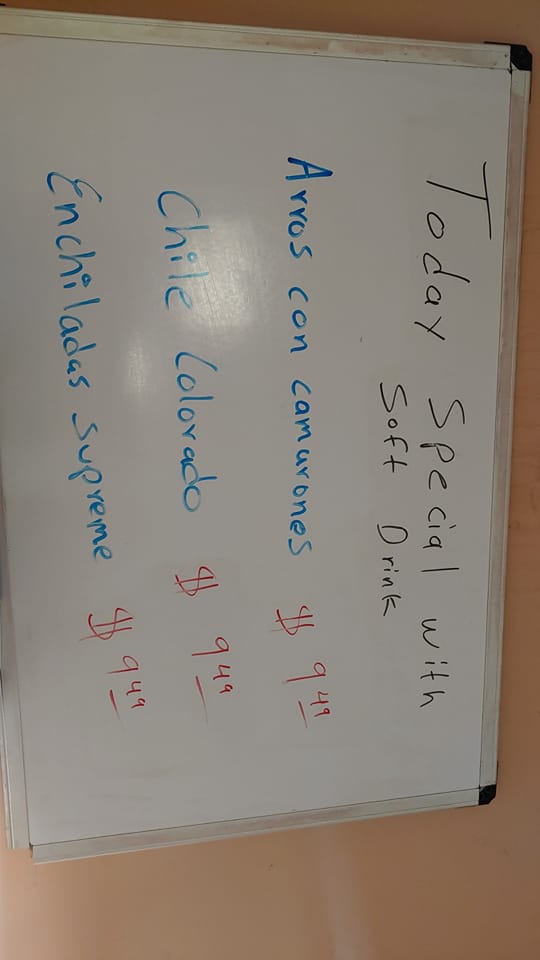 Today Special with
Soft Drink
Arros con camurones $ 9.49
Chile Colorado $ 9.49
Enchiladas Supreme $ 9.49